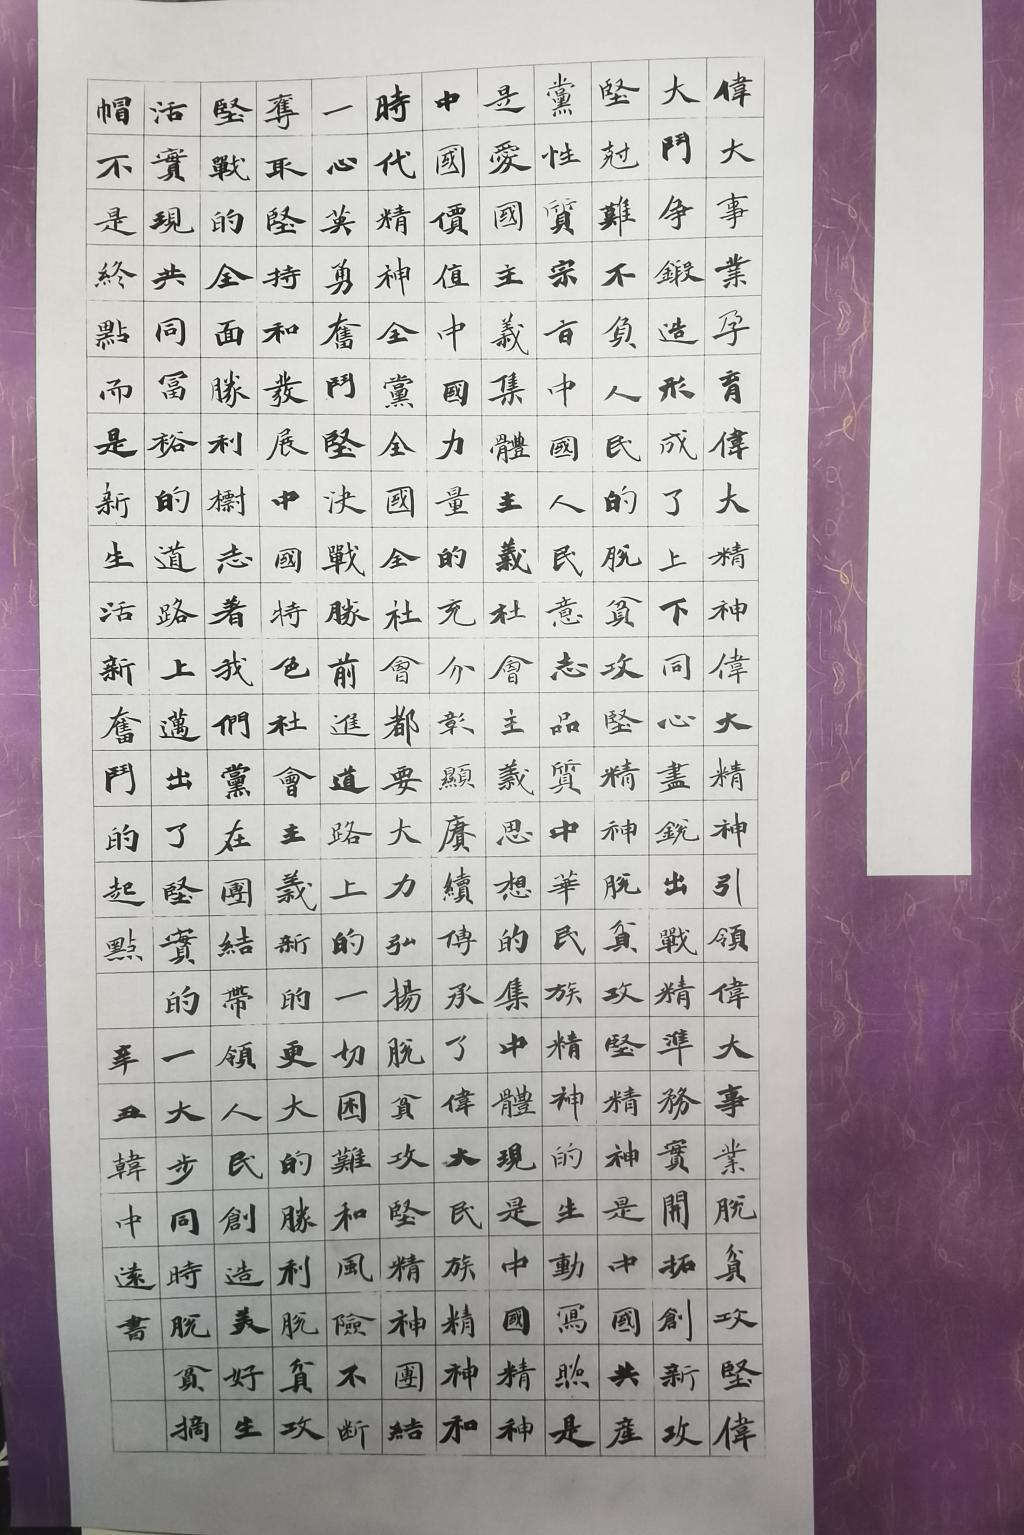 偉大事業孕育偉大精神偉大精神引領偉大事業脫貧攻堅偉
大鬥争鍛造形成了上下同心盡銳出戰精準務實開拓創新攻
堅尅難不負人民的脫貧攻堅精神脫貧攻堅精神是中國共産
黨性質宗㫖中國人民意志品質中華民族精神的生動寫照是
是愛國主義集體主義社會主義思想的集中體現是中國精神
中國價值中國力量的充分彰顯賡續傳承了偉大民族精神和
時代精神全黨全國全社會都要大力弘揚脫貧攻堅精神團結
一心英勇奮鬥堅決戰勝前進道路上的一切困難和風險不断
奪取堅持和發展中國特色社會主義新的更大的勝利脫貧攻
堅戰的全面勝利標志着我們黨在團結帶領人民創造美好生
活實現共同冨裕的道路上邁出了堅實的一大步同時脫貧摘
帽不是終點而是新生活新奮鬥的起點 辛丑韓中遠書